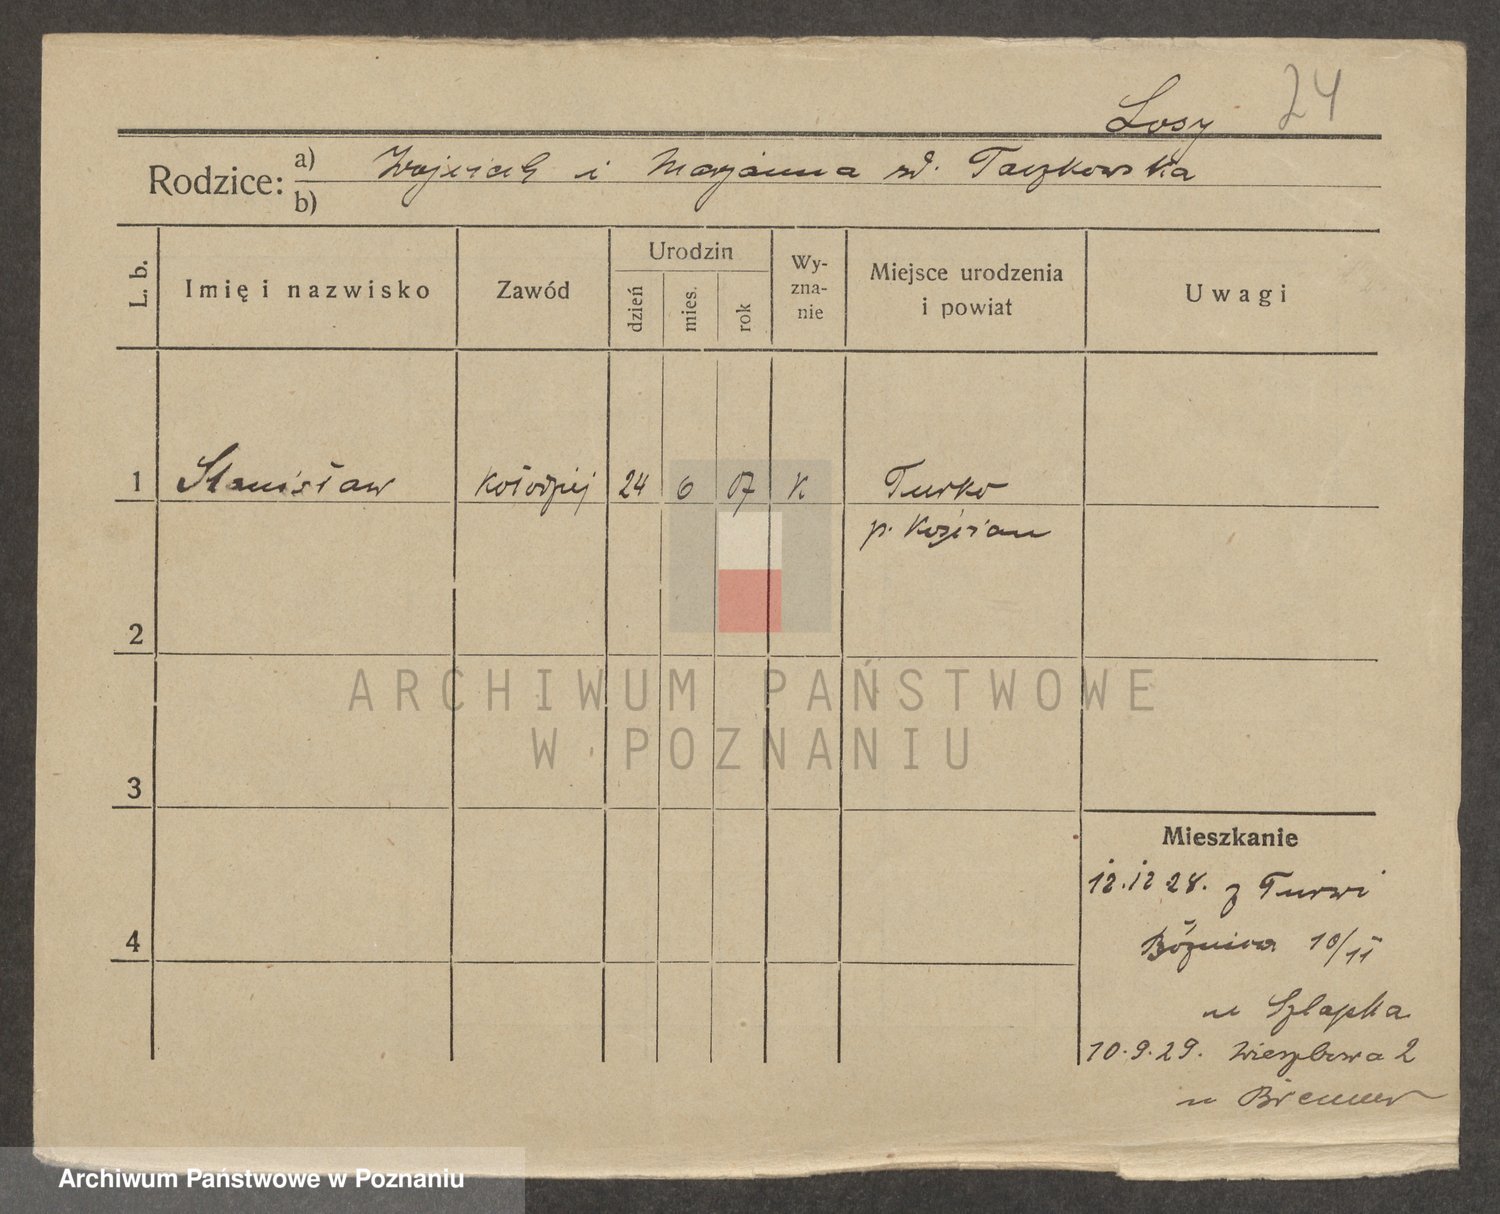 24
Losy
Rodzice: a) Wojciech i Maryanna zd. Taczkowska
b)
L. b.
Imię i nazwisko
Zawód
Urodzin
dzień
mies.
rok
Wy-
zna-
nie
Miejsce urodzenia
i powiat
Uwagi
1 Stanisław kołodziej 24 6 07 k Turko
p. Kościan
2
3
4
ARCHIWUM PAŃSTWOWE
W POZNANIU
Mieszkanie
12.12 28. z Turwi
Bóżnicza 10/11
u Szlapka
10.9.29. Wierzbowa 2
u Brenner
Archiwum Państwowe w Poznaniu